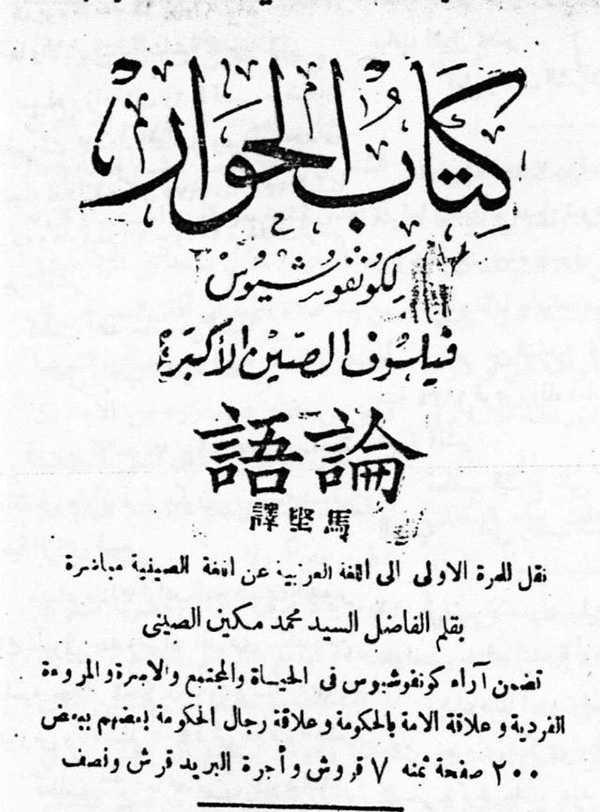 كِتَابُ الحِوَار
لِكونفوشيوس
فيلسوف الصّين الأكبر
論語
馬堅譯
نقل للمرة الاولى الى اللغة العربية عن اللغة الصينية مباشرة
بقلم الفاضل السيد محمد مكين الصينى
تضمن آراء كونفوشيوس فى الحياة والمجتمع والاسرة والمروءة
الفردية وعلاقة الامة بالحكومة وعلاقة رجال الحكومة بعضهم ببعض
٢٠٠ صفحة ثمنه ٧ قروش وأجرة البريد قرش ونصف